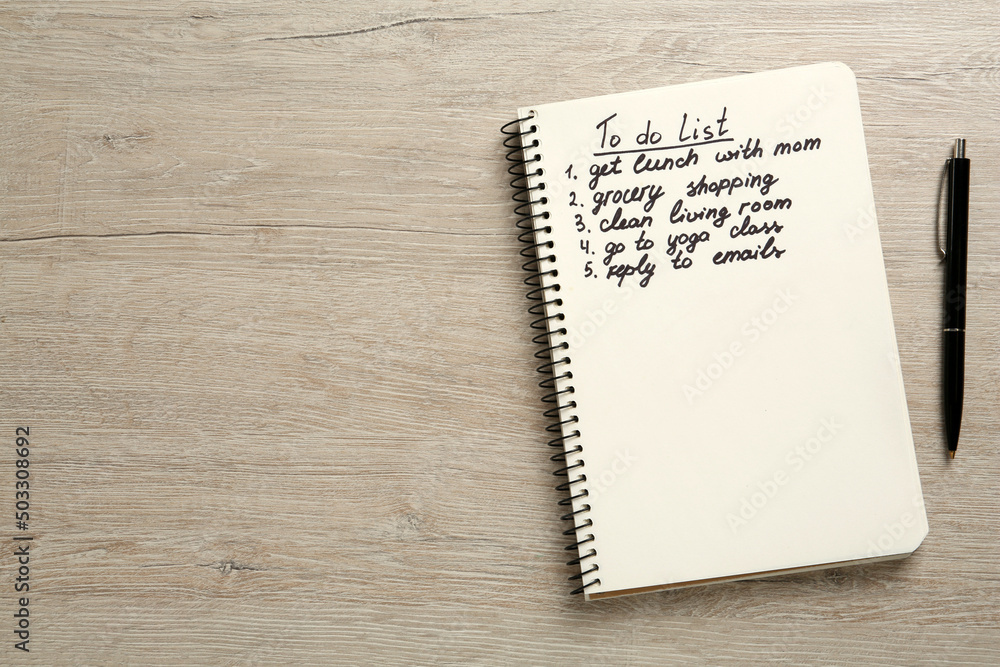 To do List
1. get lunch with mom
2. grocery shopping
3. clean living room
4. go to yoga class
5. reply to emails
Adobe Stock | #503308692